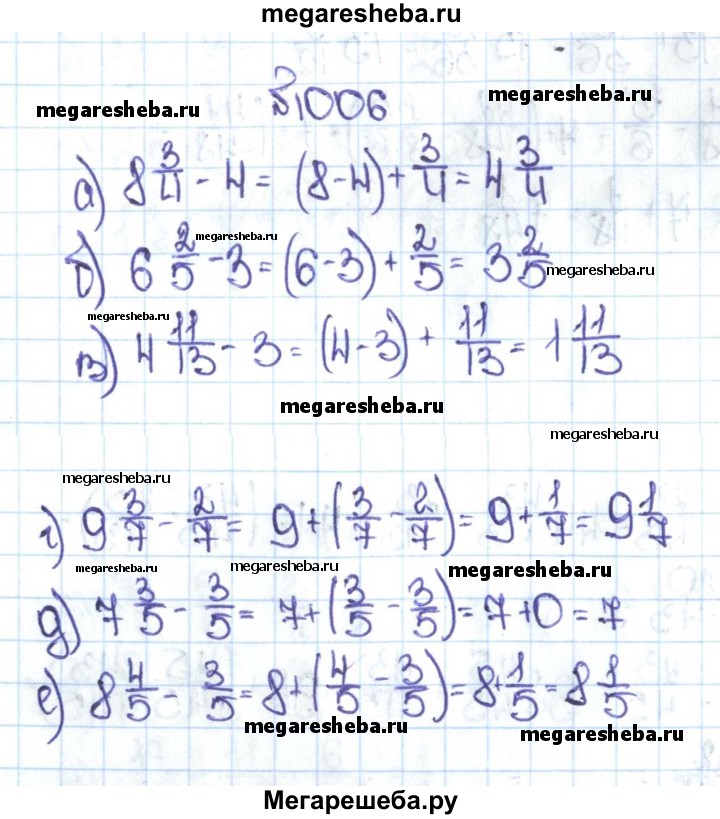 megaresheba.ru
№1006
megaresheba.ru megaresheba.ru
а) 8 3/4 - 4 = (8-4) + 3/4 = 4 3/4
megaresheba.ru
б) 6 2/5 - 3 = (6-3) + 2/5 = 3 2/5
megaresheba.ru
megaresheba.ru
в) 4 11/13 - 3 = (4-3) + 11/13 = 1 11/13
megaresheba.ru
megaresheba.ru
megaresheba.ru
г) 9 3/7 - 2/7 = 9 + (3/7 - 2/7) = 9 + 1/7 = 9 1/7
megaresheba.ru megaresheba.ru megaresheba.ru
д) 7 3/5 - 3/5 = 7 + (3/5 - 3/5) = 7 + 0 = 7
е) 8 4/5 - 3/5 = 8 + (4/5 - 3/5) = 8 + 1/5 = 8 1/5
megaresheba.ru megaresheba.ru
Мегарешеба.ру